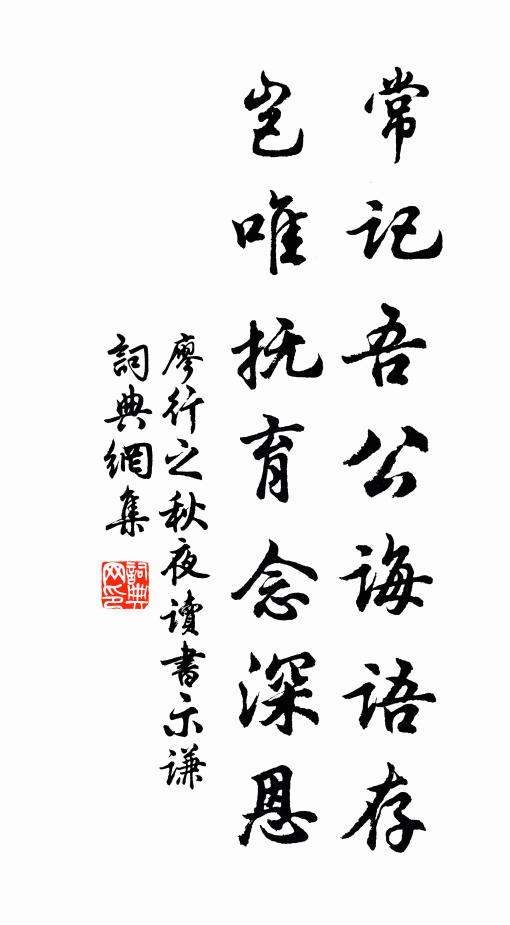 常记吾公诲语存
岂唯抚育念深恩
廖行之秋夜读書示谦
詞典網集
詞典网印